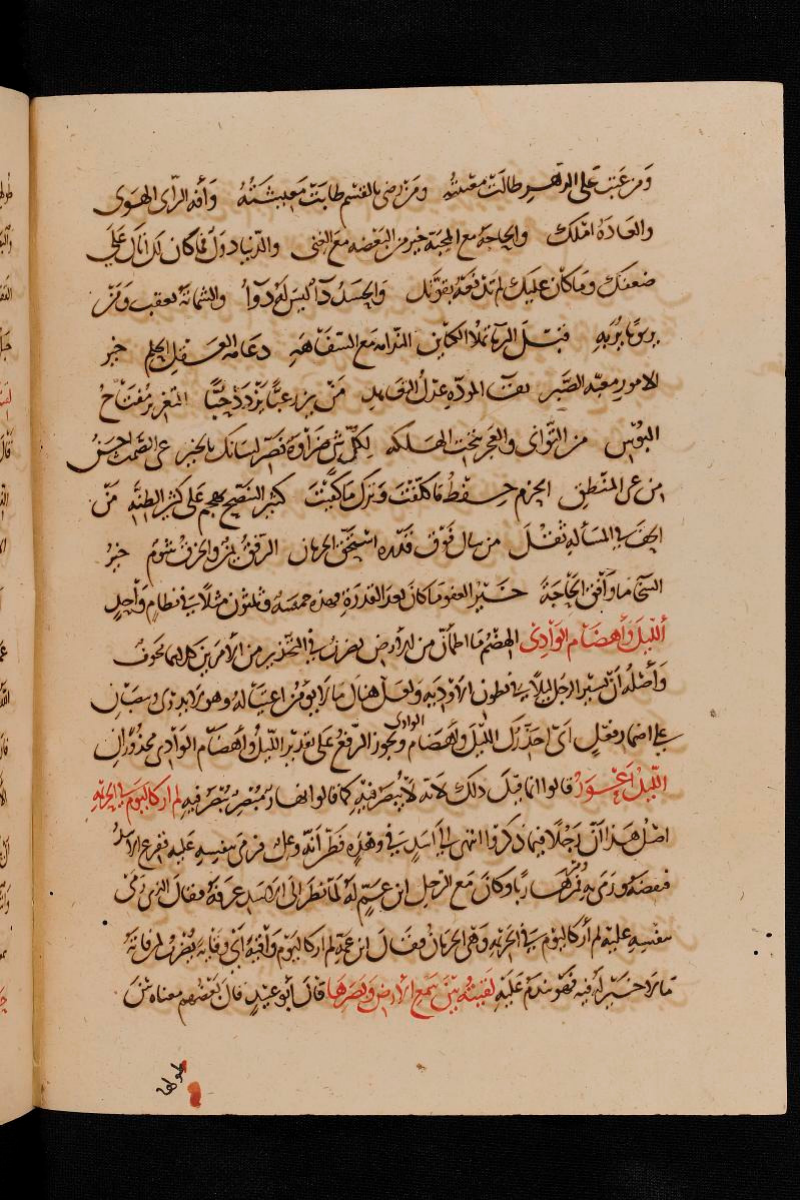 وَمن عَتبَ على الدهر طالَت معتبته ومَن رضى بالقسم طابَت مَعيشَتُهُ وَآفة الرّأى الهَوى
والعَادَة املك والحاجة مع المحبة خير من البغضه مَعَ الغنى والدنيا دوَل فما كان لك اتاك عَلَى
ضعفك وَما كان عليك لم تدفعه بقوتك وَالحسَدُ دآ ليسَ لهُ دوآ والشماتة تعقب ومَن
يرَ يومًا يُرَ بهِ قبل الرمآ تملأ الكنائن الندامه مَع السفاهَهِ دعامة العقل الحلم خير
الامور مغبّة الصَبر بقآ المودّهِ عَدلُ التعاهدِ مَنْ يزر غبًّا يَزْدَدْ حُبًّا التغرير مُفتاح
البؤس من التوانى والعجز نتجت الهلكه لِكلّ شئ ضرَاوَة فَضَرِّ لسَانك بالخير عى الصَمت احسَنُ
من عى المنطق الحزم حِفظُ ما كلّفتَ وَترك مَا كُفيتَ كثير التنصح يهجم على كثير الظنّه مَن
الحف فى المسألةِ ثقُلَ من سال فَوق قدره استحَقّ الحرمان الرفق يُمن والخرق شوم خيرُ
السخآ ما وَافق الحَاجَة خَيْر العفو مَا كانَ بَعدَ القدرَة فهذه خمسَة وثلثون مثلًا فى نظامٍ وَاحِدٍ
اَللّيلَ وَأهضَامَ الوَادِى الهضُم ما اطمأنّ من الارض يضرب فى التحذير من الأمرَينِ كلاهما مخوف
وَأصْلهُ أنّ يسير الرجل ليلًا فى بطون الاودَيه وَلعل هناك مَا لا يؤمن اغتيَاله وهو لا يدرى وينصبَان
على اضمار فعْلٍ اى احذّرك الليل واهضَام الوادى ويجوز الرفع على تقدير الليل وأهضَام الوَادى محذورَان
اللّيلُ اَعْوَرُ قالوا انما قيل ذلك لانه لا يُبصَر فيه كما قالوا نهار مُبصِر يُبصَر فيه لم ار كاليَوم فى الحريَة
اصل هَذا اَنّ رَجُلًا فيما ذكروا انتهى الى اسَدٍ فى وهْدَه فظَنّ أنّه وعل فرمى بنفسِهِ عَليهِ ففزع الاسدُ
فنفضَه وَرمى بهِ وفَرّ هَاربًا وكانَ مَع الرجل ابن عَمّ لهُ لمّا نظرَ الى الاسَدِ عرفهُ فقال الذى رَمى
بنفسِه عليهِ لم أر كاليوم فى الحريَهِ وَهى الحِرمَان فقال ابن عمّه لم ار كاليَوم وَاقيَهُ اى وقايةً يُضرَبُ لمن فاتهُ
مَا يرَاهُ خَيرًا لهُ فيه فهو يندم عَليه لَقيتُهُ بَينَ سَمع الأرضِ وَبَصَرِهَا قالَ أبو عبيد قال بَعضهم معناه بيَنَ
طولها